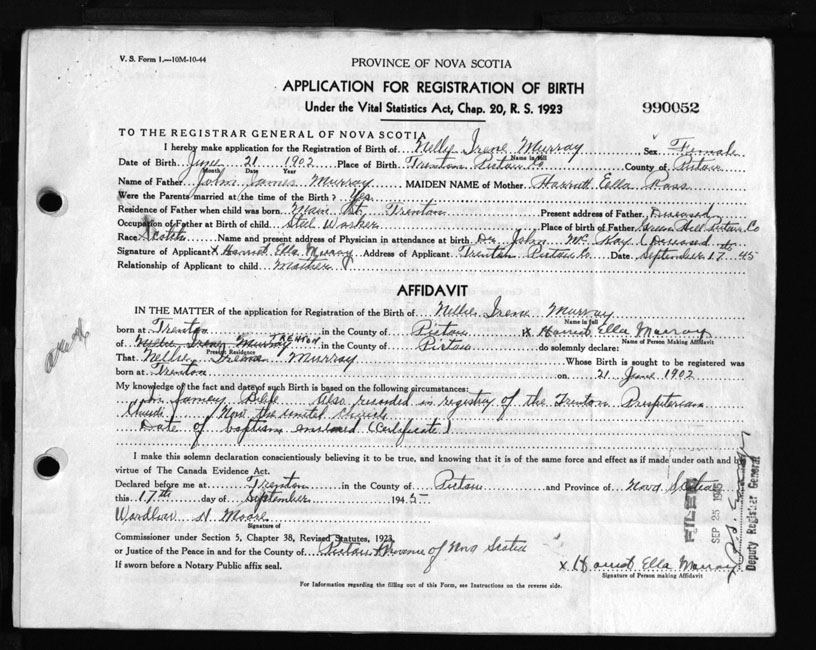 V. S. Form 1.—10M-10-44
PROVINCE OF NOVA SCOTIA
APPLICATION FOR REGISTRATION OF BIRTH
Under the Vital Statistics Act, Chap. 20, R. S. 1923
990052
TO THE REGISTRAR GENERAL OF NOVA SCOTIA
I hereby make application for the Registration of Birth of Nelly Irene Murray Sex Female
Name in full
Date of Birth June 21 1902 Place of Birth Trenton Pictou Co County of Pictou
Month Date Year
Name of Father John James Murray MAIDEN NAME of Mother Harriett Ella Ross
Were the Parents married at the time of the Birth? Yes
Residence of Father when child was born Main St, Trenton Present address of Father Deceased
Occupation of Father at Birth of child Steel Worker Place of Birth of Father Green Hill Pictou Co
Race Scotch Name and present address of Physician in attendance at birth Dr John McKay (Deceased)
Signature of Applicant x Harriet Ella Murray Address of Applicant Trenton Pictou Co Date September 17 45
Relationship of Applicant to child Mother
AFFIDAVIT
IN THE MATTER of the application for Registration of the Birth of Nellie Irene Murray
Name in full
born at Trenton in the County of Pictou x Harriet Ella Murray
Name of Person Making Affidavit
of Nellie Irene Murray TRENTON in the County of Pictou do solemnly declare:
Present Residence
That Nellie Irene Murray Whose Birth is sought to be registered was
born at Trenton on 21 June 1902
My knowledge of the fact and date of such Birth is based on the following circumstances:
In family Bible Also recorded in registry of the Trenton Presbyterian
Church Now the United Church
Date of baptism enclosed (Certificate)
I make this solemn declaration conscientiously believing it to be true, and knowing that it is of the same force and effect as if made under oath and by
virtue of The Canada Evidence Act.
Declared before me at Trenton in the County of Pictou and Province of Nova Scotia
this 17th day of September 1945
Wardlow H Moore
Signature of
Commissioner under Section 5, Chapter 38, Revised Statutes, 1923
or Justice of the Peace in and for the County of Pictou Province of Nova Scotia
If sworn before a Notary Public affix seal.
x Harriet Ella Murray
Signature of Person making Affidavit
For Information regarding the filling out of this Form, see Instructions on the reverse side.
FILED
SEP 25 1945
Deputy Registrar General